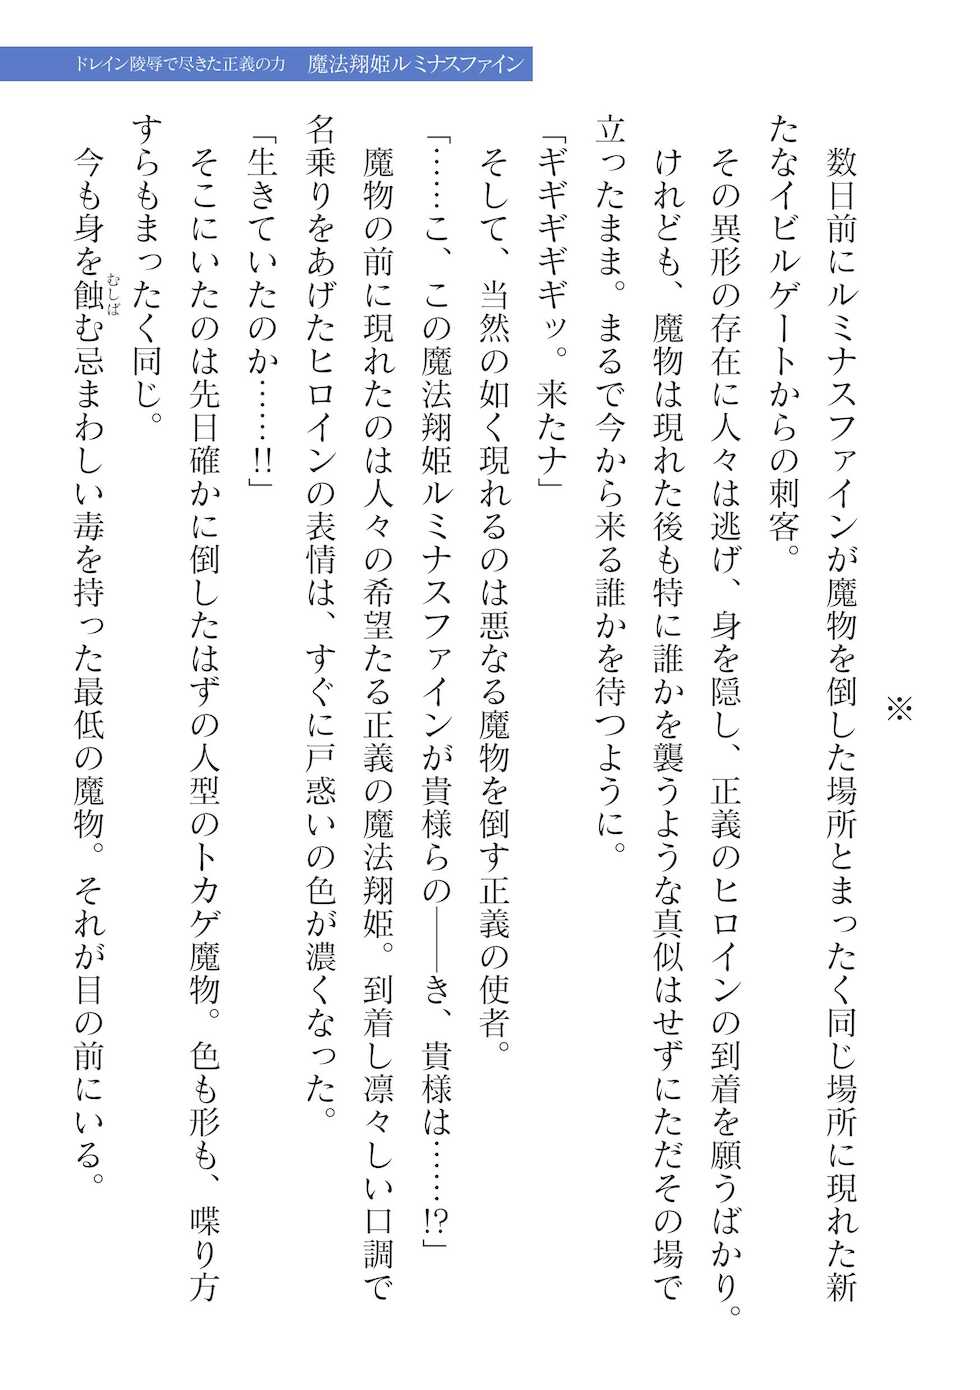 ドレイン陵辱で尽きた正義の力　魔法翔姫ルミナスファイン
※
　数日前にルミナスファインが魔物を倒した場所とまったく同じ場所に現れた新
たなイビルゲートからの刺客。
　その異形の存在に人々は逃げ、身を隠し、正義のヒロインの到着を願うばかり。
　けれども、魔物は現れた後も特に誰かを襲うような真似はせずにただその場で
立ったまま。まるで今から来る誰かを待つように。
「ギギギギギッ。来たナ」
　そして、当然の如く現れるのは悪なる魔物を倒す正義の使者。
「……こ、この魔法翔姫ルミナスファインが貴様らの――き、貴様は……!?」
　魔物の前に現れたのは人々の希望たる正義の魔法翔姫。到着し凛々しい口調で
名乗りをあげたヒロインの表情は、すぐに戸惑いの色が濃くなった。
「生きていたのか……!!」
　そこにいたのは先日確かに倒したはずの人型のトカゲ魔物。色も形も、喋り方
すらもまったく同じ。
　今も身を蝕む忌まわしい毒を持った最低の魔物。それが目の前にいる。
むしば